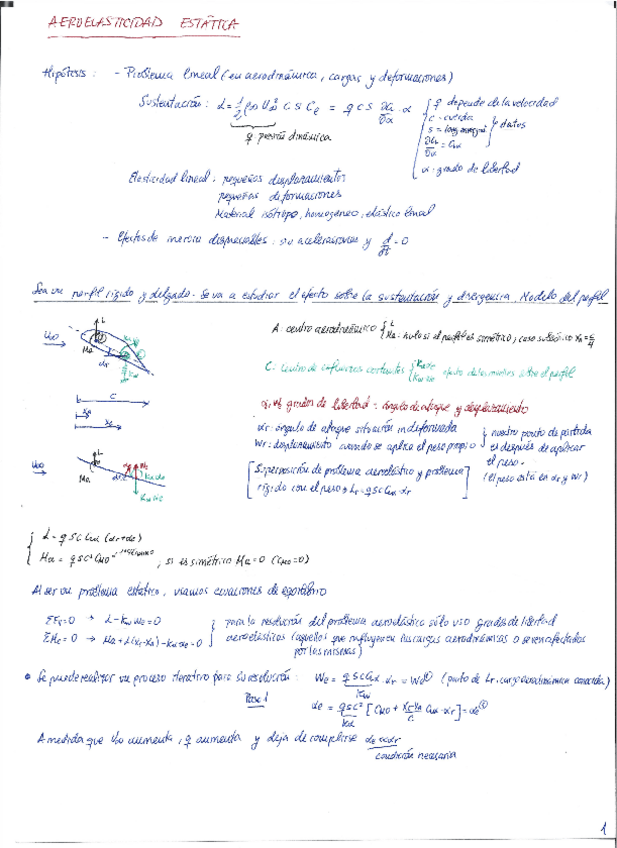 AEROELASTICIDAD ESTÁTICA
Hipótesis: - Problema lineal (en aerodinámica, cargas y deformaciones)
Sustentación: L = 1/2 ρ∞ U∞² c s C_l = q c s ∂C_L/∂α · α { q depende de la velocidad
q presión dinámica
c - cuerda
s = long
} datos
∂C_L/∂α = C_Lα
α - grado de libertad
Elasticidad lineal: pequeños desplazamientos
pequeñas deformaciones
Material isótropo, homogéneo, elástico lineal
- Efectos de inercia despreciables: sin aceleraciones y d/dt = 0
Sea un perfil rígido y delgado. Se va a estudiar el efecto sobre la sustentación y divergencia. Modelo del perfil
U∞
L
Ma
A - centro aerodinámico { L
Ma - nulo si el perfil es simétrico, caso subsónico x_A = c/4
C - centro de influencias constantes
sobre el perfil
c
x_A
x_c
grados de libertad - ángulo de ataque y desplazamiento
αr: ángulo de ataque situación indeformada
Wr: desplazamiento cuando se aplica el peso propio
} nuestro punto de partida
es después de aplicar
el peso.
(el peso está en αr y Wr)
U∞
L
Ma
[Superposición de problema aeroelástico y problema
rígido con el peso → Lr = q s c C_Lα · αr]
{ L = q s c C_Lα (αr + αe)
Ma = q s c² C_M0, si es simétrico Ma = 0 (C_M0 = 0)
Al ser un problema estático, viamos ecuaciones de equilibrio
ΣF_z = 0 → L - K_w We = 0
ΣM_c = 0 → Ma + L(x_c - x_A) - Kα αe = 0
} para la resolución del problema aeroelástico sólo uso grados de libertad
aeroelásticos (aquellos que influyen en las cargas aerodinámicas o se ven afectados
por las mismas)
• Se puede realizar un proceso iterativo para su resolución: We = q s c C_Lα / K_w · αr = We⁽¹⁾
Paso 1
αe = q s c² / Kα [C_M0 + (x_c - x_A)/c C_Lα · αr] = αe⁽¹⁾
A medida que U∞ aumenta, q aumenta y deja de cumplirse αe << αr
condición necesaria
1